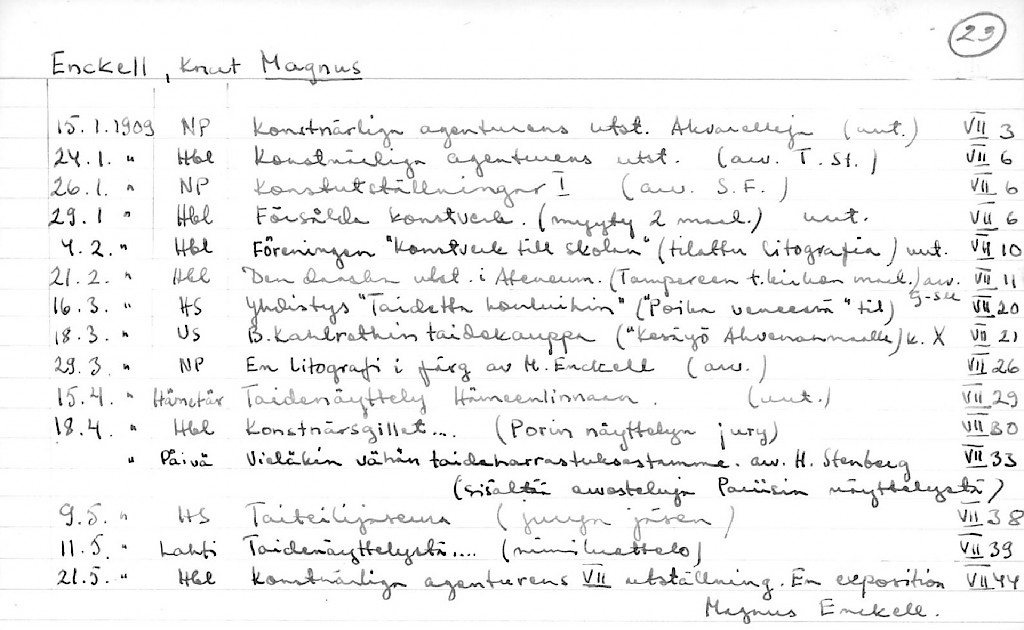 23
Enckell, Knut Magnus
15.1.1909 NP Konstnärliga agenturens utst. Akvarelleja (uut.) VII 3
24.1. " Hbl Konstnärliga agenturens utst. (arv. T. St.) VII 6
26.1. " NP Konstutställningar I (arv. S.F.) VII 6
29.1 " Hbl Försålda konstverk. (myyty 2 maal.) uut. VII 6
4.2. " Hbl Föreningen "Konstverk till skolan" (tilattu litografia) uut. VII 10
21.2. " Hbl Den danska utst. i Ateneum. (Tampereen t.kirkon maal.) arv. VII 11
16.3. " HS Yhdistys "Taidetta kouluihin" ("Poika veneessä" til) VII 20
18.3. " US B. Kahlrothin taidekauppa ("Kesäyö Ahvenanmaalla) k. X VII 21
29.3. " NP En litografi i färg av M. Enckell (arv.) VII 26
15.4. " Hämetär Taidenäyttely Hämeenlinnaan. (uut.) VII 29
18.4. " Hbl Konstnärsgillet... (Porin näyttelyn jury) VII 30
" Päivä Vieläkin vähän taideharrastuksestamme. arv. H. Stenberg VII 33
(sisältää arvosteluja Pariisin näyttelystä)
9.5. " HS Taiteilijaseura (juryn jäsen) VII 38
11.5. " Lahti Taidenäyttelystä.... (nimiluettelo) VII 39
21.5. " Hbl Konstnärliga agenturens VII utställning. En exposition VII 44
Magnus Enckell.